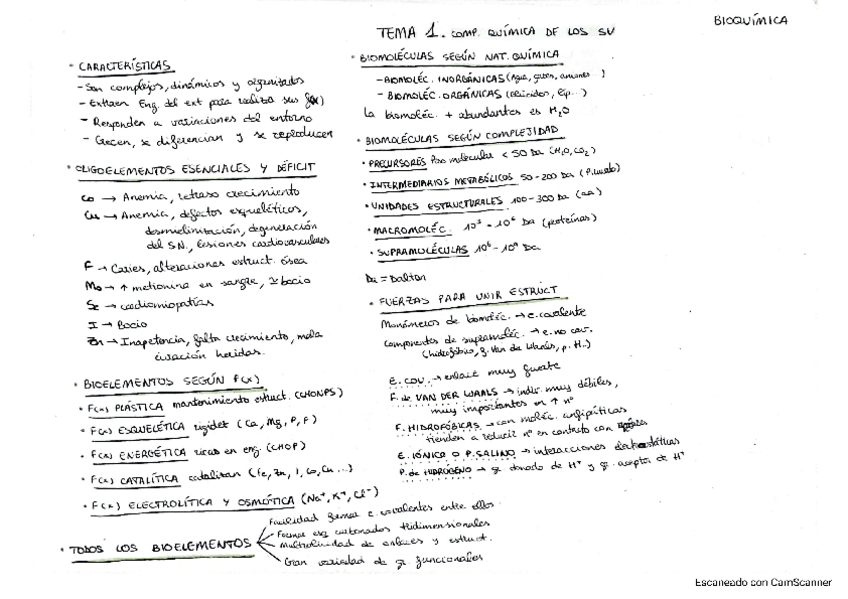 BIOQUÍMICA
TEMA 1. COMP. QUÍMICA DE LOS SV
· CARACTERÍSTICAS
- Son complejos, dinámicos y organizados
- Extraen Eng. del ext para realizar sus f(x)
- Responden a variaciones del entorno
- Crecen, se diferencian y se reproducen
· OLIGOELEMENTOS ESENCIALES Y DÉFICIT
Co → Anemia, retraso crecimiento
Cu → Anemia, defectos esqueléticos,
desmielinización, degeneración
del S.N., lesiones cardiovasculares
F → Caries, alteraciones estruct. ósea
Mo → ↑ metionina en sangre, bocio
Se → cardiomiopatías
I → Bocio
Zn → Inapetencia, falta crecimiento, mala
curación heridas.
· BIOELEMENTOS SEGÚN F(X)
· F(x) PLÁSTICA mantenimiento estruct. (CHONPS)
· F(x) ESQUELÉTICA rigidez (Ca, Mg, P, F)
· F(x) ENERGÉTICA ricas en eng. (CHOP)
· F(x) CATALÍTICA catalizan (Fe, Zn, I, Co, Cu...)
· F(x) ELECTROLÍTICA Y OSMÓTICA (Na⁺, K⁺, Cl⁻)
· TODOS LOS BIOELEMENTOS
Facilidad formar e. covalentes entre ellos
Formar esq carbonados tridimensionales
Multiplicidad de enlaces y estruct.
Gran variedad de gr funcionales
· BIOMOLÉCULAS SEGÚN NAT. QUÍMICA
- BIOMOLÉC. INORGÁNICAS (Agua, gases, aniones...)
- BIOMOLÉC. ORGÁNICAS (glúcidos, líp...)
La bioméc. + abundantes es H₂O
· BIOMOLÉCULAS SEGÚN COMPLEJIDAD
· PRECURSORES Peso molecular < 50 Da (H₂O, CO₂)
· INTERMEDIARIOS METABÓLICOS 50-200 Da (Piruvato)
· UNIDADES ESTRUCTURALES 100-300 Da (aa)
· MACROMOLÉC. 10³ - 10⁶ Da (proteínas)
· SUPRAMOLÉCULAS 10⁶ - 10⁹ Da
Da = Dalton
· FUERZAS PARA UNIR ESTRUCT
Monómeros de biomoléc. → e. covalente
Componentes de supramoléc. → e. no cov.
(hidrofóbico, f. Van de Waals, p. H..)
E. COV. → enlace muy fuerte
F. de VAN DER WAALS → indiv. muy débiles,
muy importantes en ↑ nº
F. HIDROFÓBICAS → con moléc. anfipáticas
tienden a reducir nº en contacto con
E. IÓNICO O P. SALINO → interacciones electrostáticas
P. de HIDRÓGENO → gr donado de H⁺ y gr. aceptor de H⁺
Escaneado con CamScanner